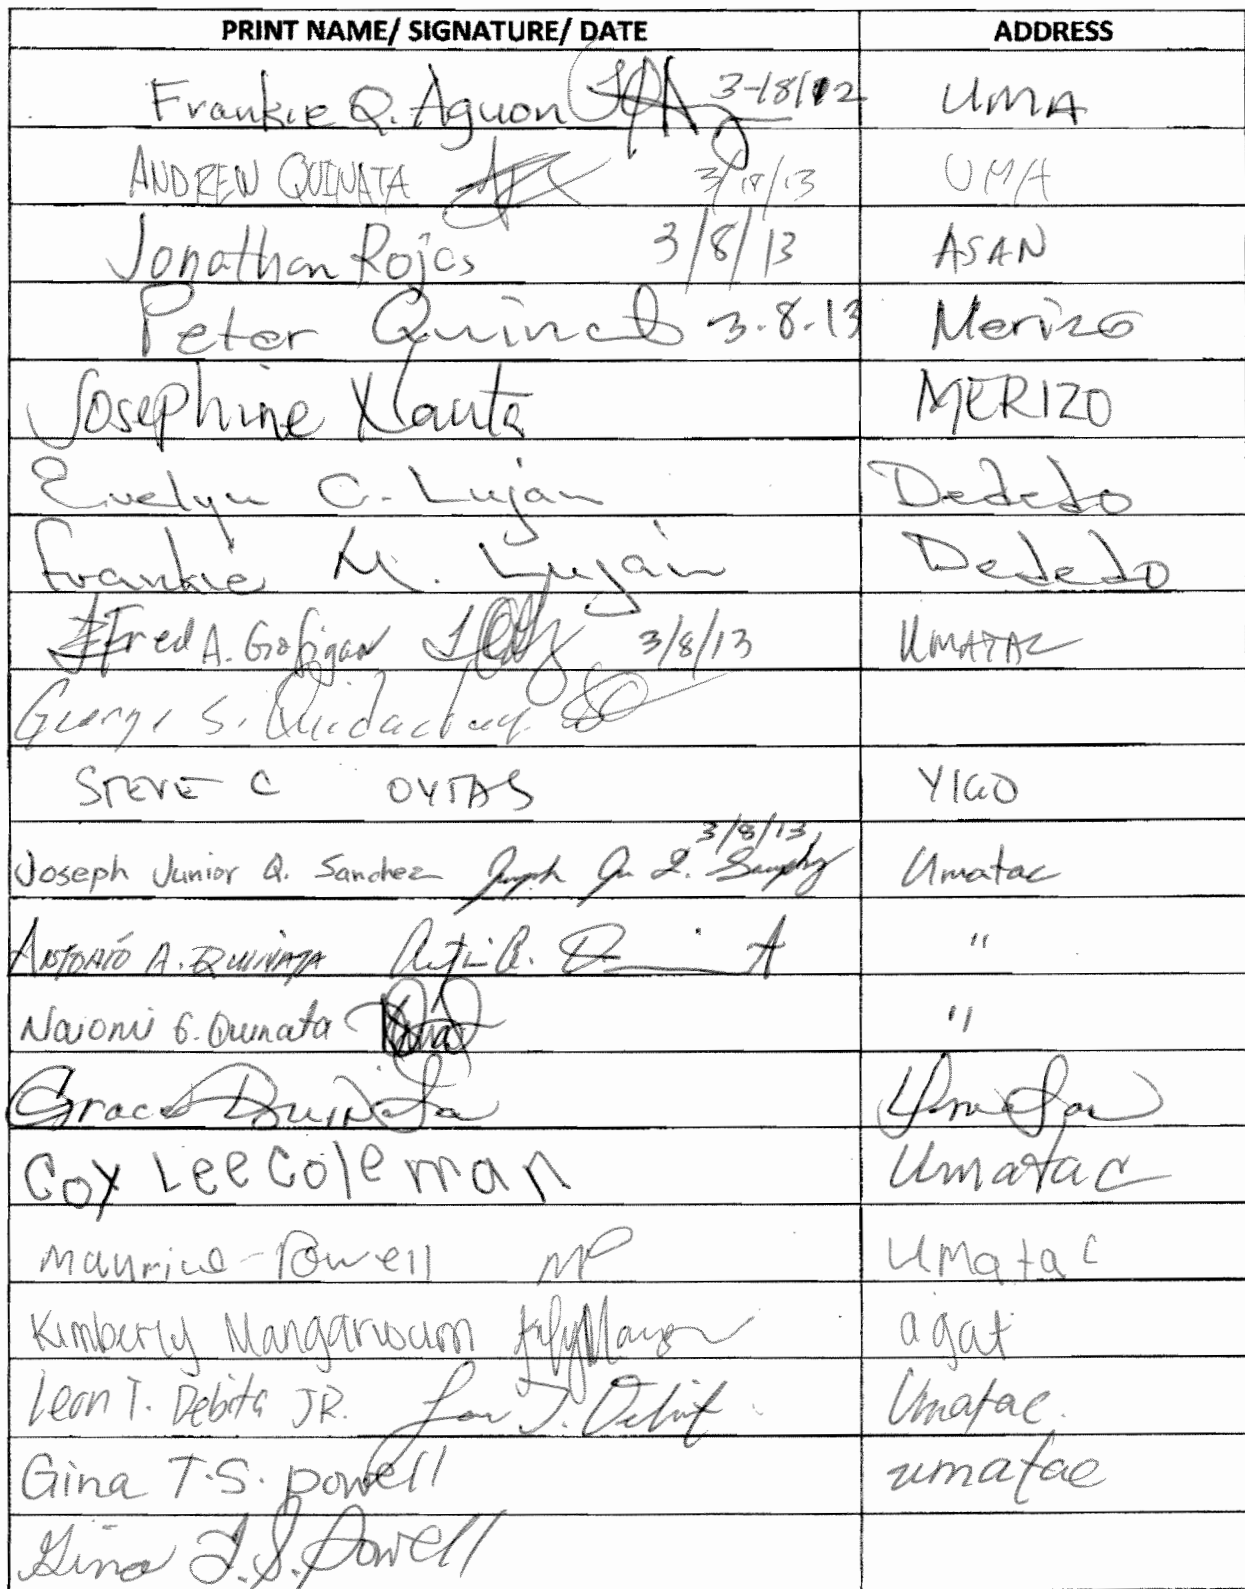 PRINT NAME/ SIGNATURE/ DATE ADDRESS
Frankie Q. Aguon 3-18/12 UMA
ANDREW QUINATA 3/18/13 UMA
Jonathan Rojas 3/8/13 ASAN
Peter Quinata 3-8-13 Merizo
Josephine Nauta MERIZO
Evelyn C. Lujan Dededo
Frankie M. Lujan Dededo
Fred A. Gofigan 3/8/13 UMATAC
George S. Quidachay
STEVE C OYTAS YIGO
3/8/13
Joseph Junior Q. Sanchez Joseph Jr Q. Sanchez Umatac
ANTONIO A. QUINATA "
Naiomi G. Quinata "
Grace Quinata Umatac
Coy Lee Coleman Umatac
Maurice Powell MP Umatac
Kimberly Mangarwoum agat
Leon T. Debita JR. Leon T. Debita Umatac.
Gina T.S. powell umatac
Gina T.S. Powell